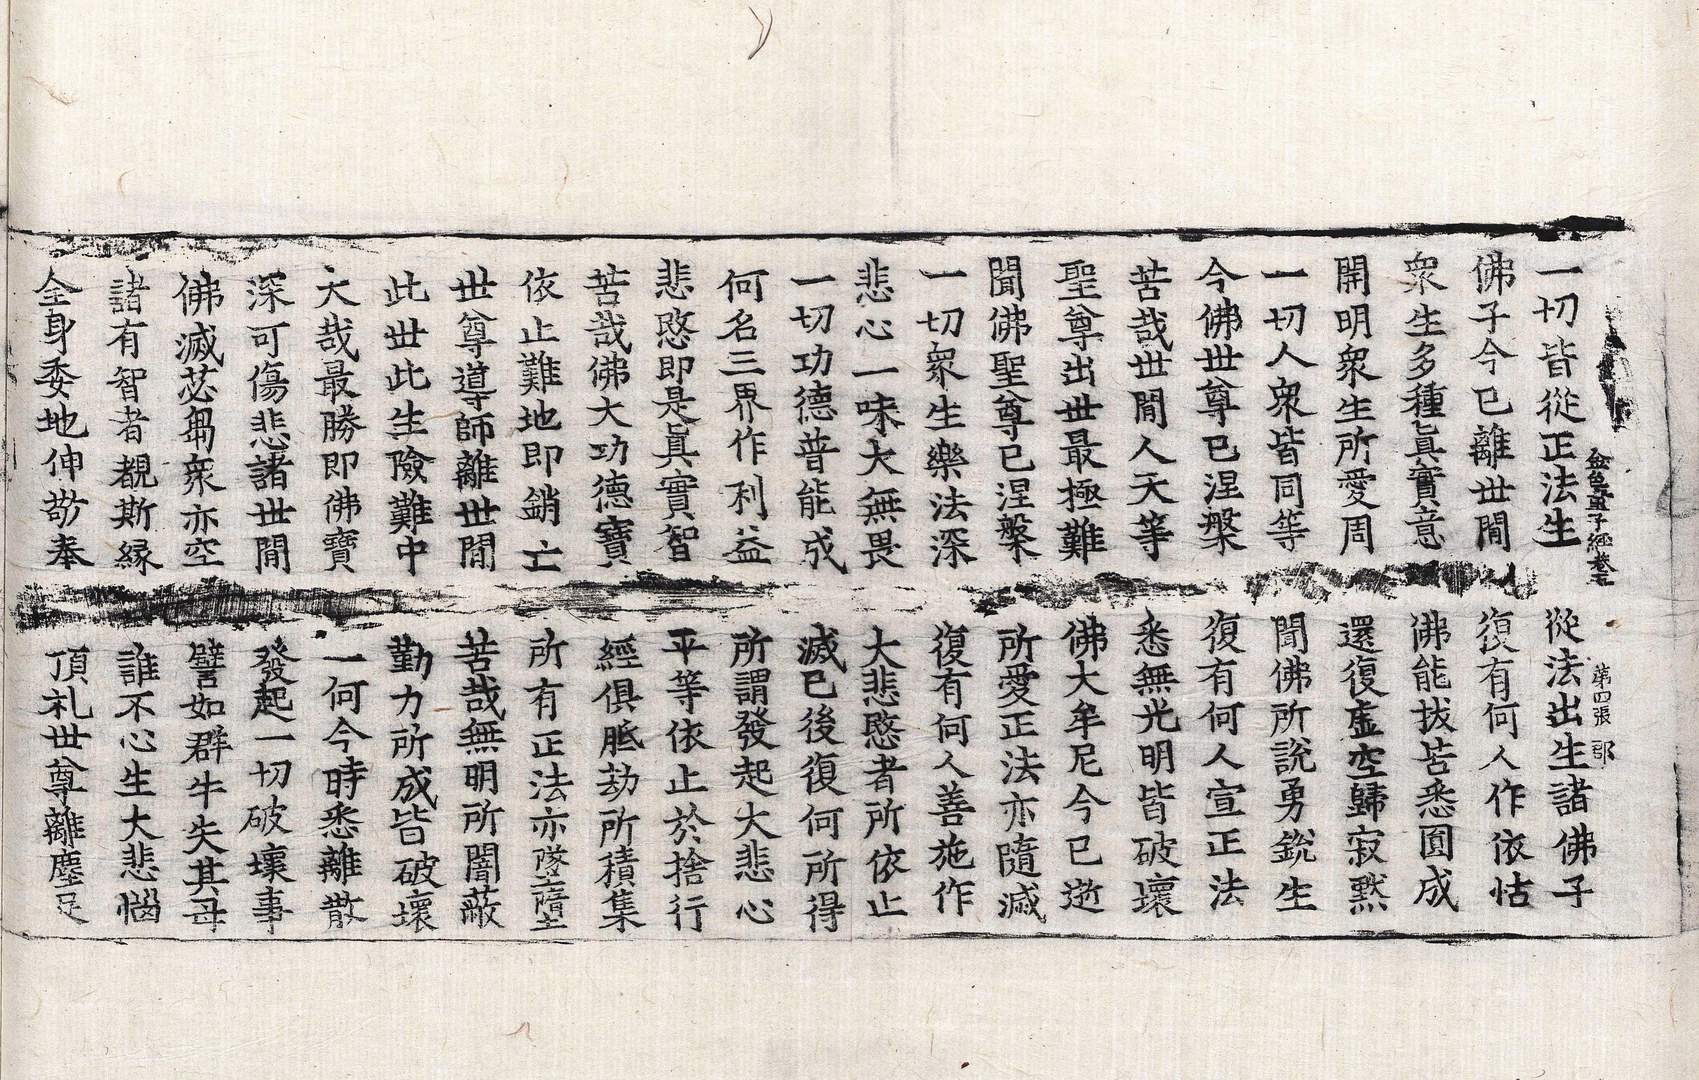 金色童子經卷五 第四張
一切皆從正法生 從法出生諸佛子
佛子今已離世間 復有何人作依怙
衆生多種眞實意 佛能拔苦悉圓成
開明衆生所愛周 還復虛空歸寂黙
一切人衆皆同等 聞佛所說勇銳生
今佛世尊已涅槃 復有何人宣正法
苦哉世間人天等 悉無光明皆破壞
聖尊出世最極難 佛大牟尼今已逝
聞佛聖尊已涅槃 所愛正法亦隨滅
一切衆生樂法深 復有何人善施作
悲心一味大無畏 大悲愍者所依止
一切功德普能成 滅已後復何所得
何名三界作利益 所謂發起大悲心
悲愍即是眞實智 平等依止於捨行
苦哉佛大功德寶 經俱胝劫所積集
依止難地即銷亡 所有正法亦墜墮
世尊導師離世間 苦哉無明所闇蔽
此世此生險難中 勤力所成皆破壞
大哉最勝即佛寶 一何今時悉離散
深可傷悲諸世間 發起一切破壞事
佛滅苾芻衆亦空 譬如群牛失其母
諸有智者覩斯緣 誰不心生大悲惱
全身委地伸敬奉 頂礼世尊離塵足